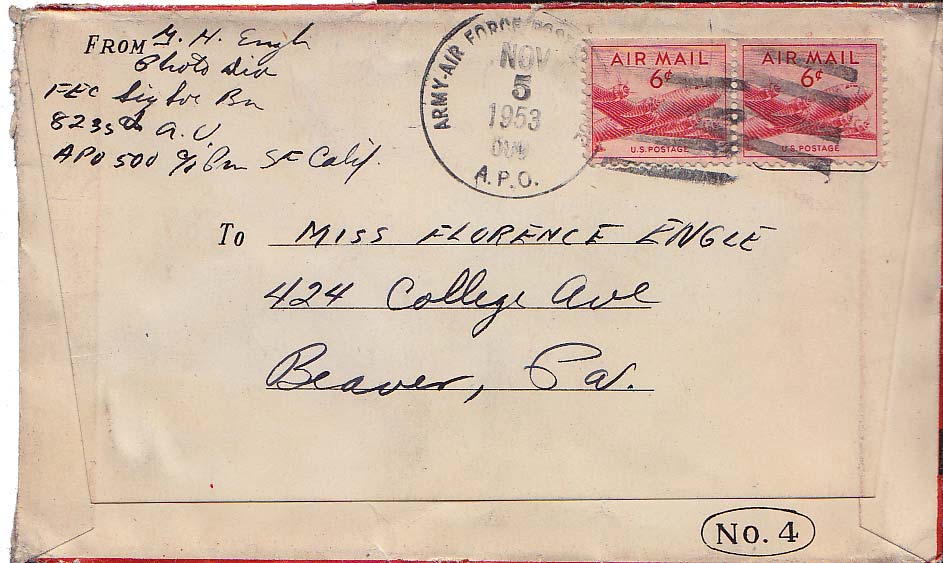 FROM G. H. Engle
Photo Div
FEC Sig Svc Bn
8235th A.U.
APO 500 c/o Pm SF Calif.
ARMY-AIR FORCE POSTAL
NOV
5
1953
A.P.O.
AIR MAIL
6¢
U.S. POSTAGE
AIR MAIL
6¢
U.S. POSTAGE
To MISS FLORENCE ENGLE
424 College Ave
Beaver, Pa.
No. 4